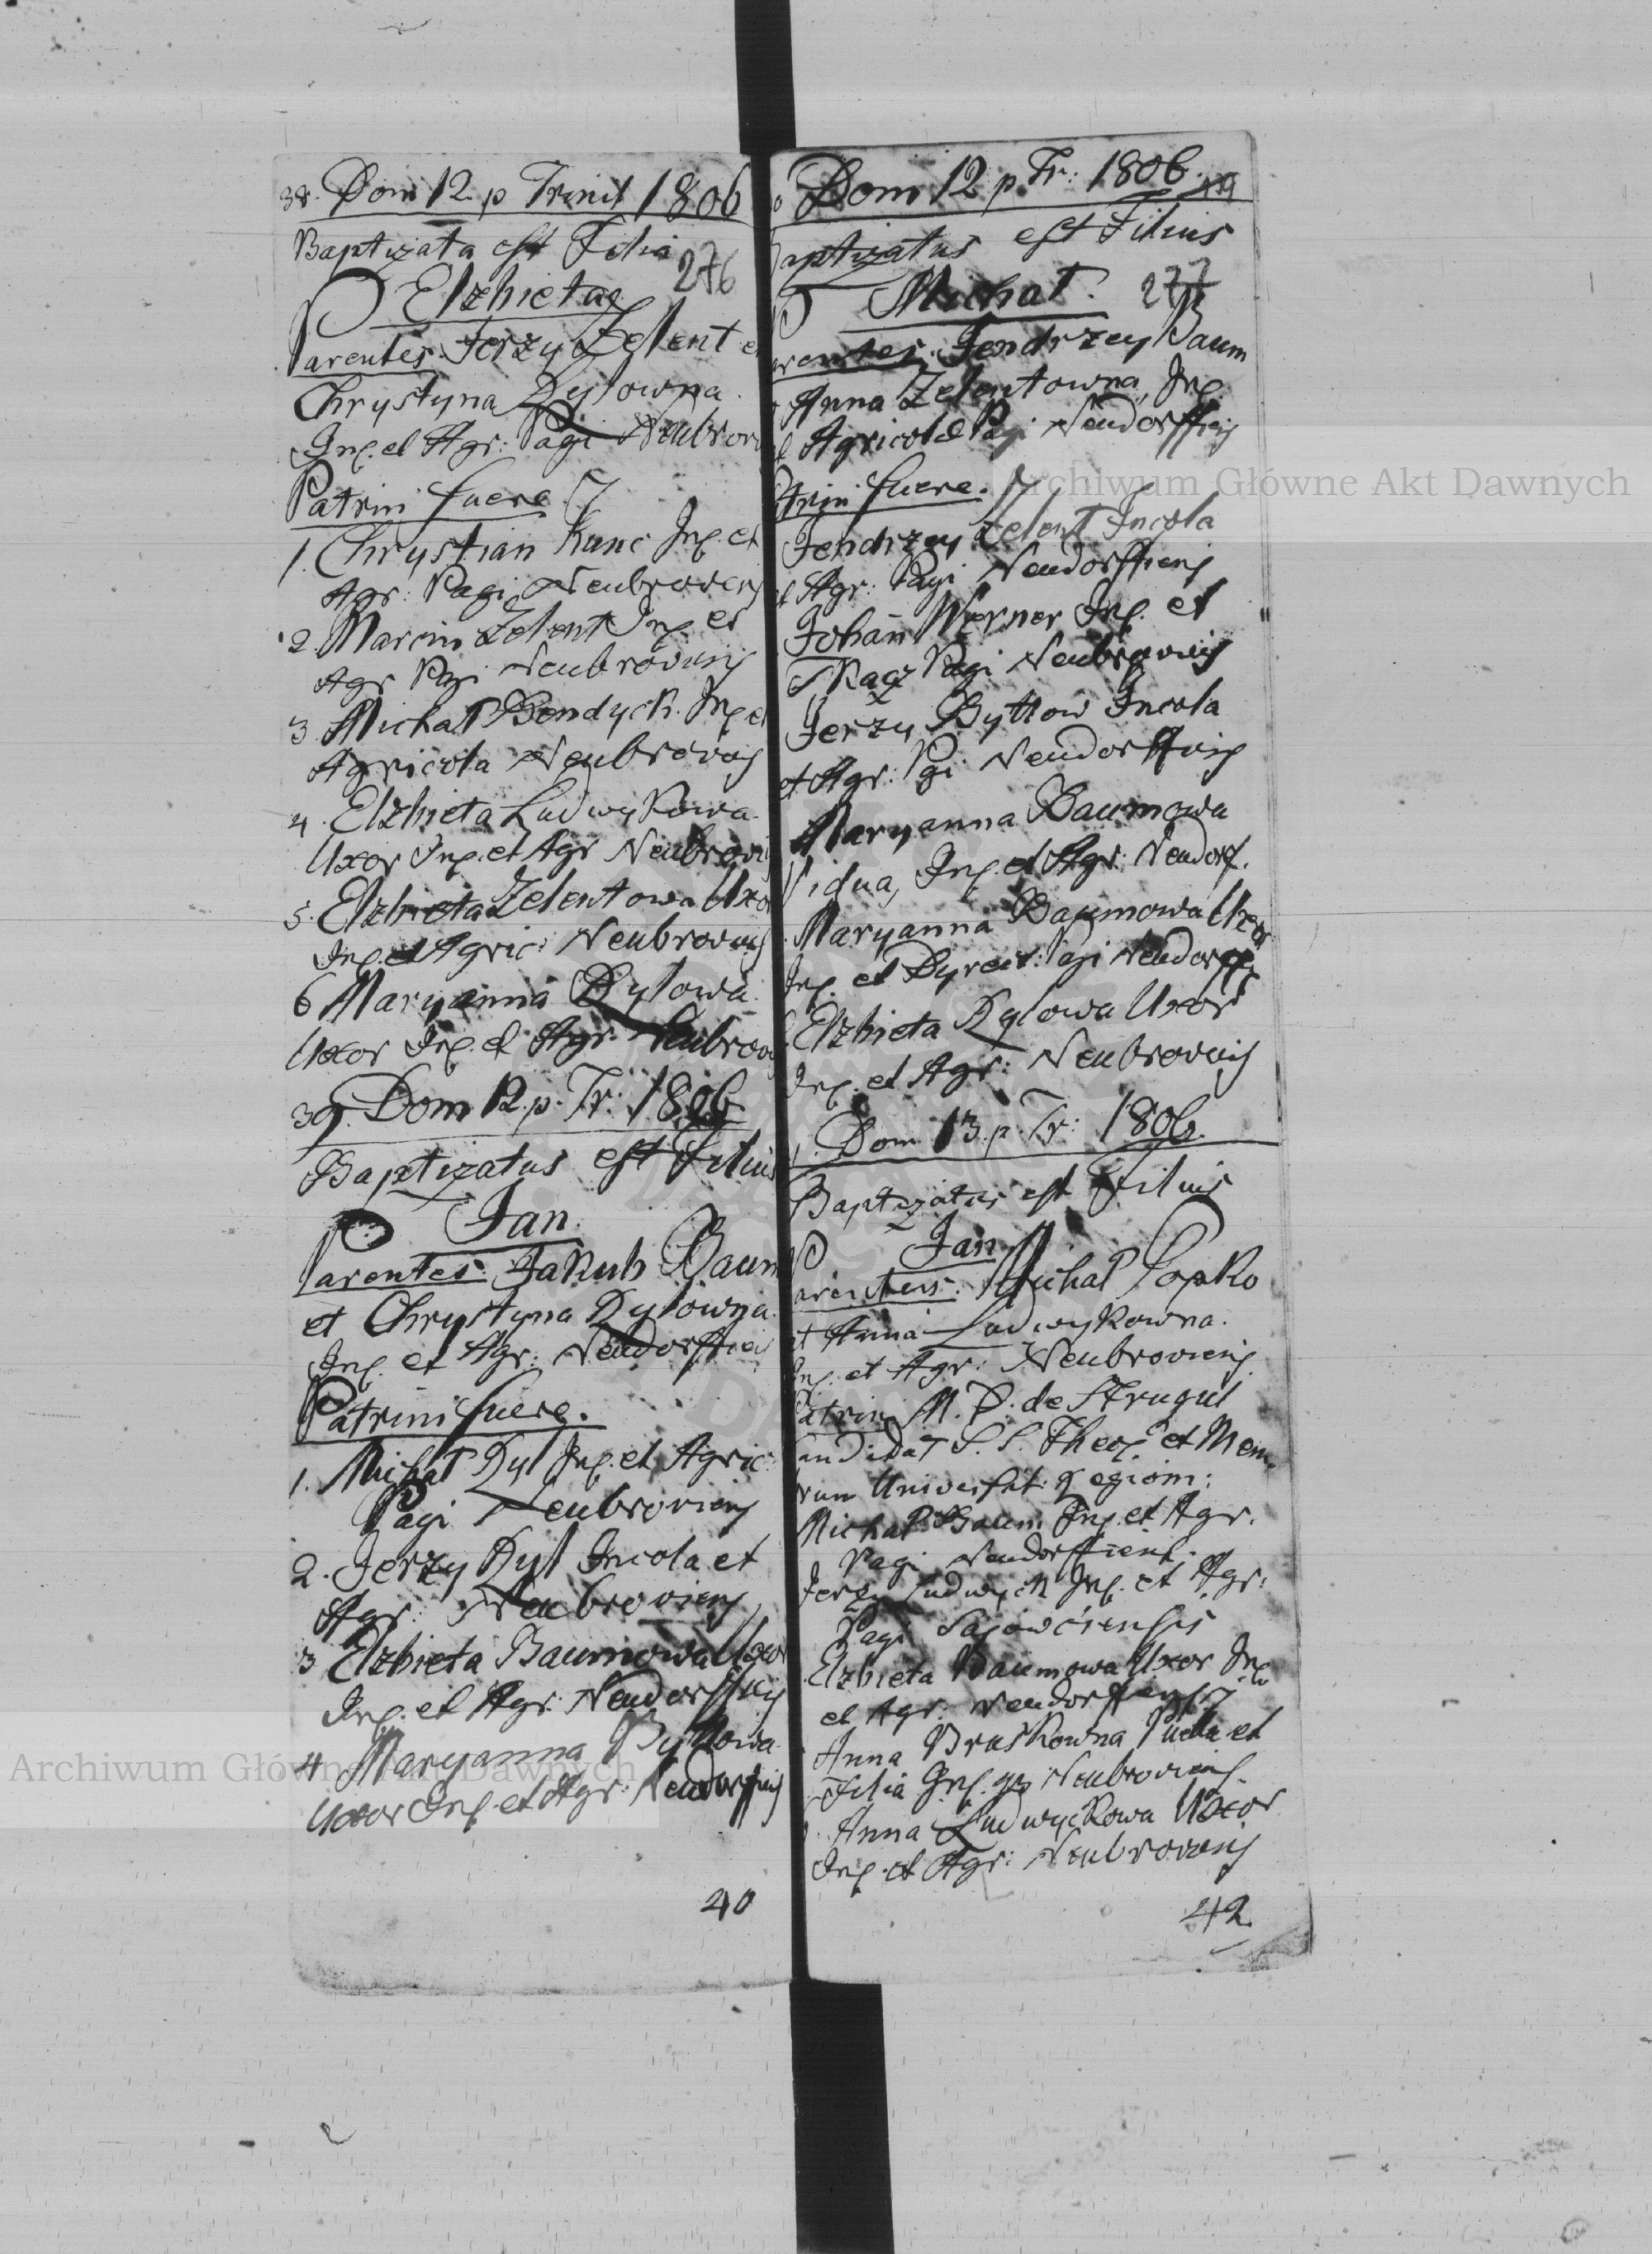 38. Dom 12. p Trinit 1806
Baptizata est Filia
276
Elzbieta
Parentes. Jerzy Zelent et
Chrystyna Rylowna.
Inq. et Agr: Pagi Neubrov
Patrini fuere
1. Chrystian Kunc Inq. et
Agr: Pagi Neubroviens
2. Marcin Zelent Inq. et
Agr Pagi Neubroviens
3. Michał Bendych. Inq. et
Agricola Neubroviens
4. Elzbieta Ludwykowa.
Uxor Inq. et Agr Neubrovi
5. Elzbieta Zelentowa Uxor
Inq. et Agric: Neubroviens
6 Maryanna Rylowa.
Uxor Inq. et Agr. Neubrov
39. Dom 12. p. Tr: 1806
Baptizatus est Filius
Jan.
Parentes. Jakub Baum
et Chrystyna Rylowna.
Inq. et Agr: Neudorffiens
Patrini fuere.
1. Michał Ryl Inq. et Agric:
Pagi Neubroviens
2. Jerzy Ryl Incola et
Agr: Neubroviens
3 Elzbieta Baumowa Uxor
Inq. et Agr: Neudorffiens
4. Maryanna Byttowa.
Uxor Inq. et Agr: Neudorffiens
40
Dom 12 p. Tr: 1806.
aptizatus est Filius
Michał. 277
arentes. Jendrzey Baum
Anna Zelentowna, Inq.
et Agricolæ Pagi Neudorffiens
atrini fuere.
Jendrzey Zelent Incola
et Agr: Pagi Neudorffiens
Johan Werner Inq. et
Tkacz Pagi Neubroviens
Jerzy Byttow Incola
et Agr: Pgi Neudorffiens
Maryanna Baumowa
Vidua, Inq. et Agr: Neudorf.
Maryanna Baumowa Uxor
Inq. et Dyrect: Pagi Neudorff
Elzbieta Rylowa Uxor
Inq. et Agr: Neubroviens
Dom 13. p. Tr: 1806.
Baptizatus est Filius
Jan
Parentes. Michał Popko
et Anna Ludwykowna.
Inq. et Agr: Neubroviens
Patrini M. D. de
andidat S. S. Theol et Mem
rum Universit: Regiom:
Michał Baum Inq. et Agr.
Pagi Neudorffiens.
Jerzy Ludwych Inq. et Agr:
Pagi Sajowciensis
Elzbieta Baumowa Uxor Inq
et Agr: Neudorffiens
Anna Bruskowna Puella et
Filia Inq. Neubroviens.
Anna Ludwyckowa Uxor
Inq. et Agr: Neubroviens
42
Archiwum Główne Akt Dawnych
Archiwum Główne Akt Dawnych